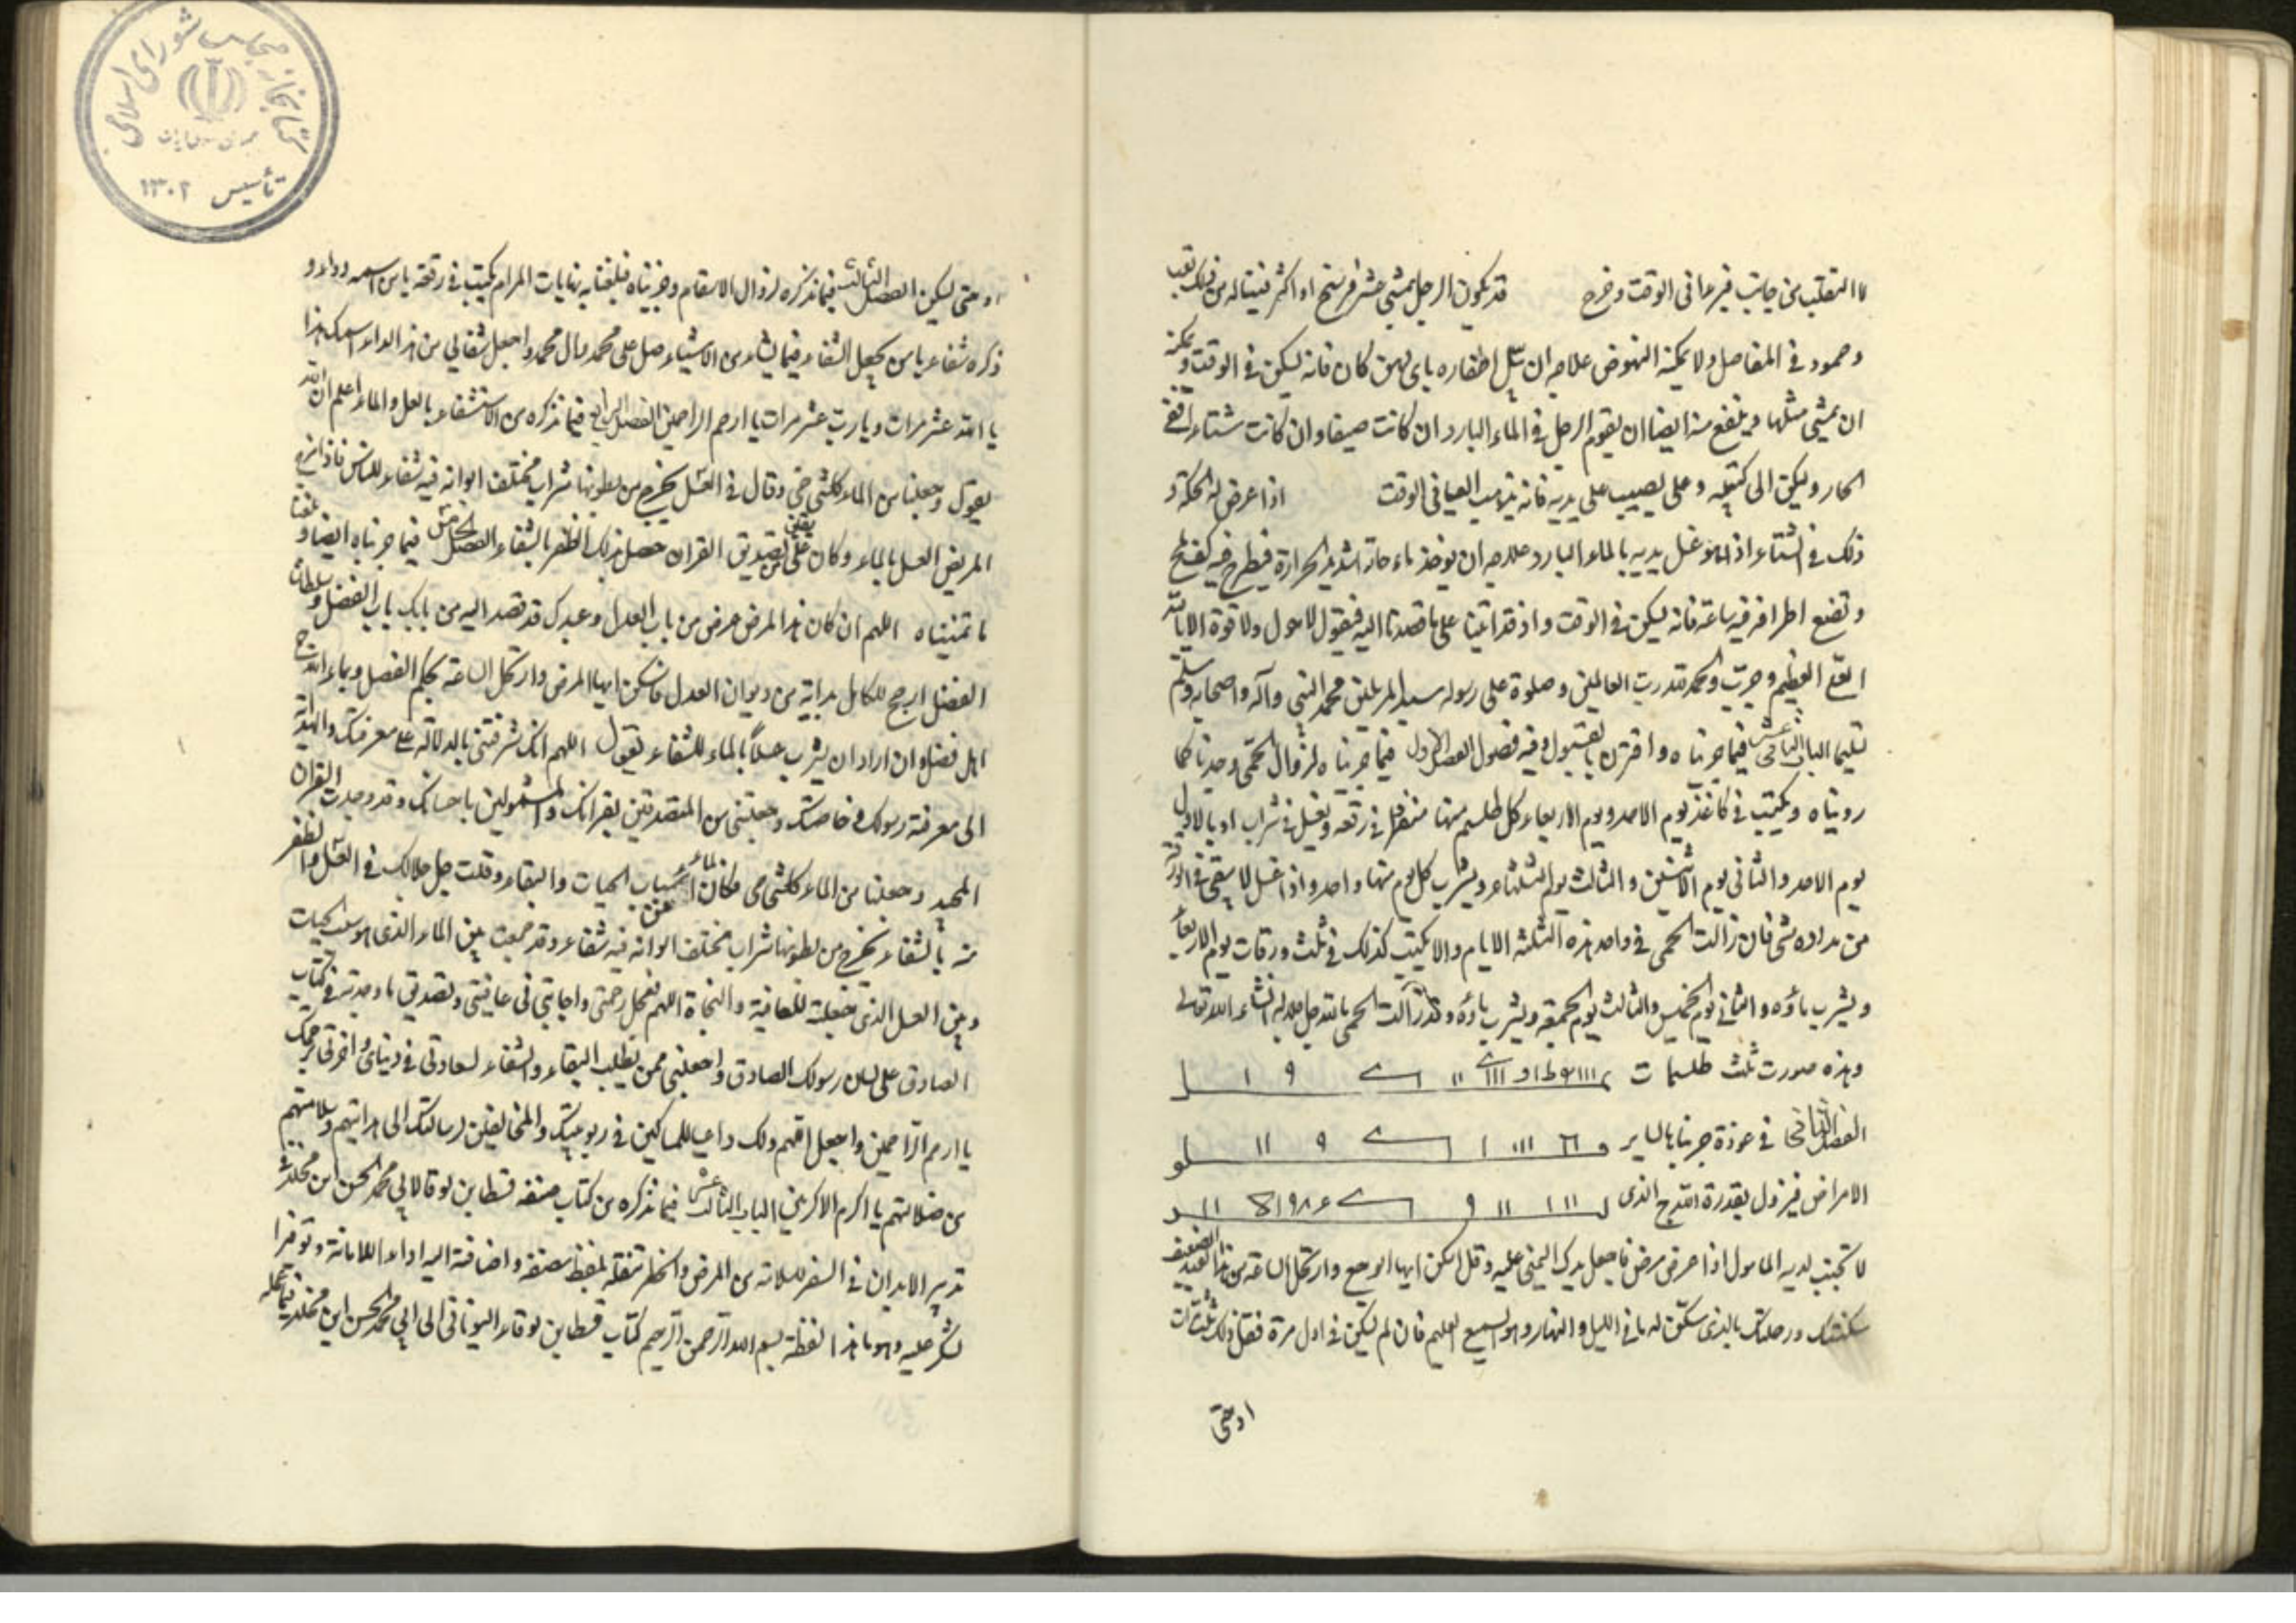 لا التقلب من جانب فيبرء فى الوقت وخرج قد يكون الرجل يمشى عشر فرسخ او اكثر فيناله من ذلك تعب
وجمود فى المفاصل ولا يمكنه النهوض علاجه ان اظفاره باى دهن كان فانه يسكن فى الوقت ويمكنه
ان يمشى مثلها وينفع منه ايضا ان يقوم الرجل فى الماء البارد ان كانت صيفا وان كانت شتاء ففى
الحار وليكن الى كتفيه وعلى يصيب على يديه فانه يذهب العيا فى الوقت اذا عرض له الحكة و
ذلك فى الشتاء اذا هو غسل يديه بالماء البارد علاجه ان يوخذ ماء حار شديد الحرارة فيطرح فيه كف ملح
وتضع اطرافه فيه ساعة فانه يسكن فى الوقت واذ قد اتينا على ما قصدنا اليه فيقول لا حول ولا قوة الا بالله
العلى العظيم وحرب والحمد لله رب العالمين وصلوة على رسوله سيد المرسلين محمد النبى وآله واصحابه وسلم
تسليما الباب الثانى عشر فيما جربناه واقترن بالقبول وفيه فصول الفصل الاول فيما جربناه لزوال الحمى وجدنا كما
رويناه ويكتب فى كاغذ يوم الاحد ويوم الاربعاء كل طلسم منها منفردا فى رقعة ويغسل فى شراب الاول
يوم الاحد والثانى يوم الاثنين والثالث يوم الثلثاء ويشرب كل يوم منها واحد واذا غسل لا يبقى فى الورقة
من مداده شى فان زالت الحمى فى واحد هذه الثلثة الايام والا يكتب كذلك فى ثلث ورقات يوم الاربعاء
ويشرب ماؤه والثانى يوم الخميس والثالث يوم الجمعة ويشرب ماؤه وقد زالت الحمى بالله جل جلاله انشاء الله تعالى
وهذه صورت ثلث طلسمات
الفصل الثانى فى عوذة جربناها لساير
الامراض فيزول بقدرة الله ج الذى
لا تخيب لديه المامول اذا عرض مرض فاجعل يدك اليمنى عليه وقل اسكن ايها الوجع وارتحل الساعة من هذا العبد الضعيف
سكنتك ورحلتك بالذى سكن له ما فى الليل والنهار وهو السميع العليم فان لم يسكن فى اول مرة فقل ذلك ثلث مرات
او حتى
او حتى يسكن الفصل الثالث فيما نذكره لزوال الاسقام وجربناه فبلغنا به نهايات المرام يكتب فى رقعة يا من اسمه دواء و
ذكره شفاء يا من يجعل الشفاء فيما يشاء من الاشياء صل على محمد وال محمد واجعل شفائى من هذا الداء اسمك هذا
يا الله عشر مرات ويا رب عشر مرات يا ارحم الراحمين الفصل الرابع فيما نذكره من الاستشفاء بالعسل والماء اعلم ان الله
يقول وجعلنا من الماء كل شى حى وقال فى العسل يخرج من بطونها شراب مختلف الوانه فيه شفاء للناس فاذا مزج
المريض العسل بالماء وكان على يقين من تصديق القران حصل بذلك الظفر بالشفاء الفصل الخامس فيما جربناه ايضا و بلغنا
ما تمنيناه اللهم ان كان هذا المرض عرض من باب العدل وعبدك قد قصد اليه من بابك باب الفضل وسلطان
الفضل ارجح للكامل بذاته من ديوان العدل فاسكن ايها المرض وارتحل الساعة بحكم الفضل وبما الله ج
اهل فضله وان اراد ان يشرب عسلاً بالماء للشفاء يقول اللهم انك شرفتنى بالدلالة على معرفتك والهداية
الى معرفة رسولك وخاصتك وجعلتنى من المتصدقين بقرانك والمشمولين باحسانك وقد وجدت القران
المجيد وجعلنا من الماء كل شى حى فكان الماء من اسباب الحيات والبقاء وقلت جل جلالك فى العسل والظفر
منه بالشفاء يخرج من بطونها شراب مختلف الوانه فيه شفاء وقد جمعت بين الماء الذى هو سبب الحيات
وبين العسل الذى جعلته للعافية والنجاة اللهم فعجل رحمتى واجابتى فى عافيتى وتصديق ما وجدته فى كتاب
الصادق على لسان رسولك الصادق واجعلنى ممن يطلب البقاء والشفاء لسعادتى فى دنياى واخرتى برحمتك
يا ارحم الراحمين واجعل اقيهم ولك داعيا للساكين فى ربوبيتك والمخالفين لرسالتك الى هدايتهم وسلامتهم
من ضلالتهم يا اكرم الاكرمين الباب الثالث عشر فيما نذكره من كتاب صنفه قسطا بن لوقا لابى محمد الحسن ابن مخلد فى
تدبير الابدان فى السفر للسلامة من المرض والخطر ننقله بلفظ مصنفه واضافته اليه اداء للامانة وتوفرا
لشكر عليه وهو ما هذا لفظه بسم الله الرحمن الرحيم كتاب قسطا بن لوقاء اليونانى الى ابى محمد الحسن ابن مخلد فيما عمله
كتابخانه مجلس شوراى اسلامى
تأسيس ١٣٠٢